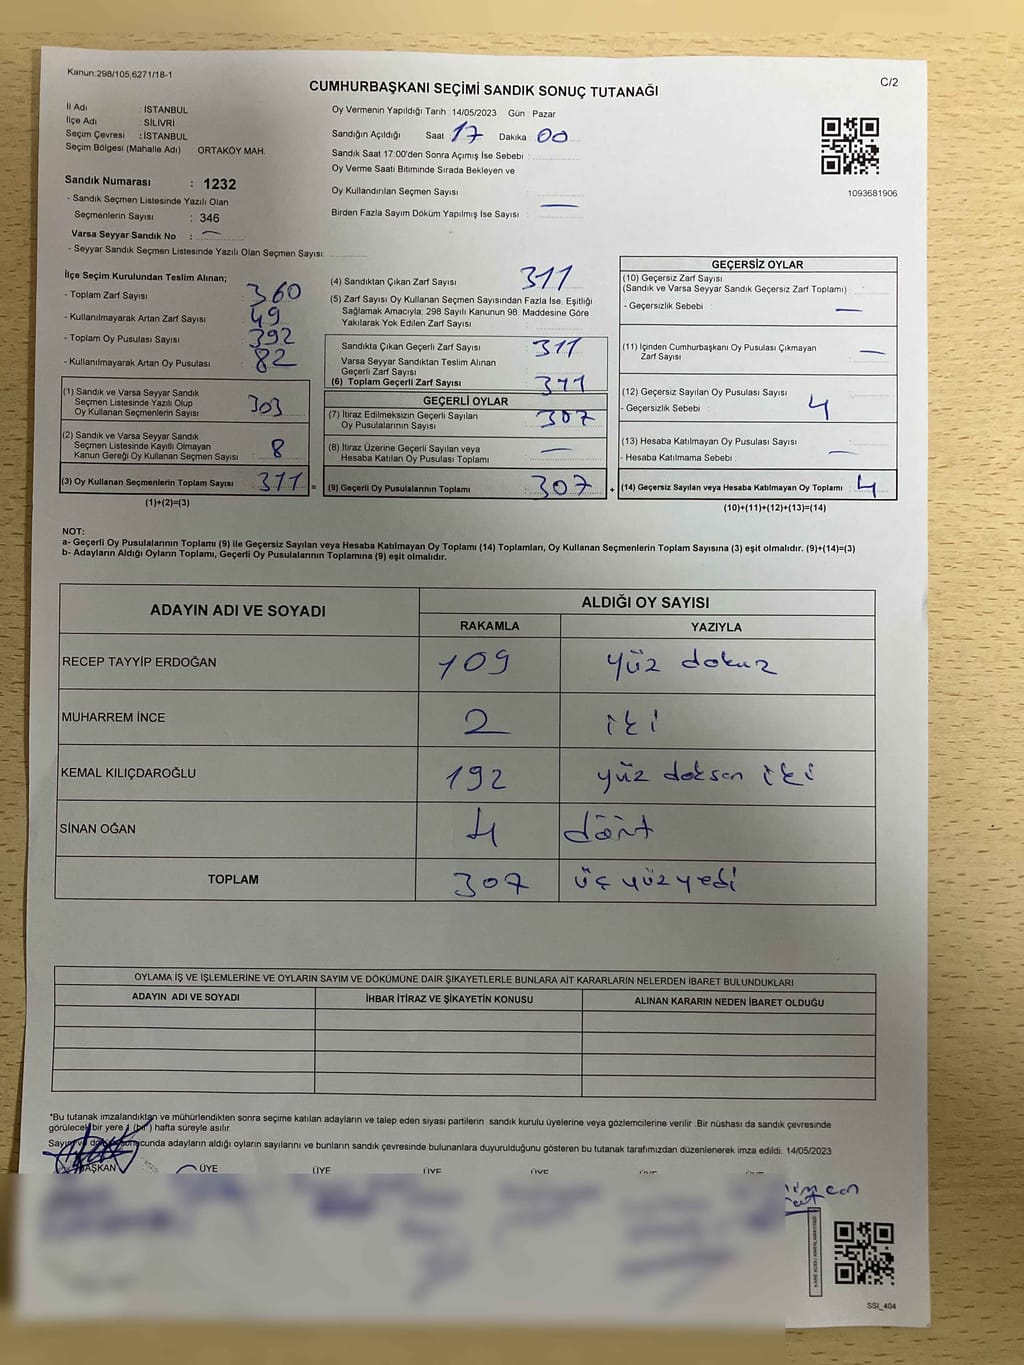 Kanun:298/105,6271/18-1
C/2
CUMHURBAŞKANI SEÇİMİ SANDIK SONUÇ TUTANAĞI
İl Adı : İSTANBUL
İlçe Adı : SİLİVRİ
Seçim Çevresi : İSTANBUL
Seçim Bölgesi (Mahalle Adı) : ORTAKÖY MAH.
Sandık Numarası : 1232
- Sandık Seçmen Listesinde Yazılı Olan
Seçmenlerin Sayısı : 346
Varsa Seyyar Sandık No : —
- Seyyar Sandık Seçmen Listesinde Yazılı Olan Seçmen Sayısı:
Oy Vermenin Yapıldığı Tarih : 14/05/2023 Gün : Pazar
Sandığın Açıldığı Saat 17 Dakika 00
Sandık Saat 17:00'den Sonra Açımış İse Sebebi :
Oy Verme Saati Bitiminde Sırada Bekleyen ve
Oy Kullandırılan Seçmen Sayısı —
Birden Fazla Sayım Döküm Yapılmış İse Sayısı :
1093681906
İlçe Seçim Kurulundan Teslim Alınan;
- Toplam Zarf Sayısı : 360
- Kullanılmayarak Artan Zarf Sayısı : 49
- Toplam Oy Pusulası Sayısı : 392
- Kullanılmayarak Artan Oy Pusulası : 82
(1) Sandık ve Varsa Seyyar Sandık
Seçmen Listesinde Yazılı Olup
Oy Kullanan Seçmenlerin Sayısı : 303
(2) Sandık ve Varsa Seyyar Sandık
Seçmen Listesinde Kayıtlı Olmayan
Kanun Gereği Oy Kullanan Seçmen Sayısı : 8
(3) Oy Kullanan Seçmenlerin Toplam Sayısı : 311
(1)+(2)=(3)
(4) Sandıktan Çıkan Zarf Sayısı : 311
(5) Zarf Sayısı Oy Kullanan Seçmen Sayısından Fazla İse, Eşitliği
Sağlamak Amacıyla; 298 Sayılı Kanunun 98. Maddesine Göre
Yakılarak Yok Edilen Zarf Sayısı :
Sandıkta Çıkan Geçerli Zarf Sayısı : 311
Varsa Seyyar Sandıktan Teslim Alınan
Geçerli Zarf Sayısı :
(6) Toplam Geçerli Zarf Sayısı : 311
GEÇERLİ OYLAR
(7) İtiraz Edilmeksizin Geçerli Sayılan
Oy Pusulalarının Sayısı : 307
(8) İtiraz Üzerine Geçerli Sayılan veya
Hesaba Katılan Oy Pusulası Toplamı : —
= (9) Geçerli Oy Pusulalarının Toplamı : 307
GEÇERSİZ OYLAR
(10) Geçersiz Zarf Sayısı
(Sandık ve Varsa Seyyar Sandık Geçersiz Zarf Toplamı) :
- Geçersizlik Sebebi : —
(11) İçinden Cumhurbaşkanı Oy Pusulası Çıkmayan
Zarf Sayısı : —
(12) Geçersiz Sayılan Oy Pusulası Sayısı :
- Geçersizlik Sebebi : 4
(13) Hesaba Katılmayan Oy Pusulası Sayısı :
- Hesaba Katılmama Sebebi : —
+ (14) Geçersiz Sayılan veya Hesaba Katılmayan Oy Toplamı : 4
(10)+(11)+(12)+(13)=(14)
NOT:
a- Geçerli Oy Pusulalarının Toplamı (9) ile Geçersiz Sayılan veya Hesaba Katılmayan Oy Toplamı (14) Toplamları, Oy Kullanan Seçmenlerin Toplam Sayısına (3) eşit olmalıdır. (9)+(14)=(3)
b- Adayların Aldığı Oyların Toplamı, Geçerli Oy Pusulalarının Toplamına (9) eşit olmalıdır.
ADAYIN ADI VE SOYADI ALDIĞI OY SAYISI
RAKAMLA YAZIYLA
RECEP TAYYİP ERDOĞAN 109 yüz dokuz
MUHARREM İNCE 2 iki
KEMAL KILIÇDAROĞLU 192 yüz doksan iki
SİNAN OĞAN 4 dört
TOPLAM 307 üç yüz yedi
OYLAMA İŞ VE İŞLEMLERİNE VE OYLARIN SAYIM VE DÖKÜMÜNE DAİR ŞİKAYETLERLE BUNLARA AİT KARARLARIN NELERDEN İBARET BULUNDUKLARI
ADAYIN ADI VE SOYADI İHBAR İTİRAZ VE ŞİKAYETİN KONUSU ALINAN KARARIN NEDEN İBARET OLDUĞU
*Bu tutanak imzalandıktan ve mühürlendikten sonra seçime katılan adayların ve talep eden siyasi partilerin sandık kurulu üyelerine veya gözlemcilerine verilir .Bir nüshası da sandık çevresinde
görülecek bir yere 1 (bir) hafta süreyle asılır.
Sayım ve döküm sonucunda adayların aldığı oyların sayılarını ve bunların sandık çevresinde bulunanlara duyurulduğunu gösteren bu tutanak tarafımızdan düzenlenerek imza edildi. 14/05/2023
BAŞKAN ÜYE ÜYE ÜYE ÜYE ÜYE
SSI_404